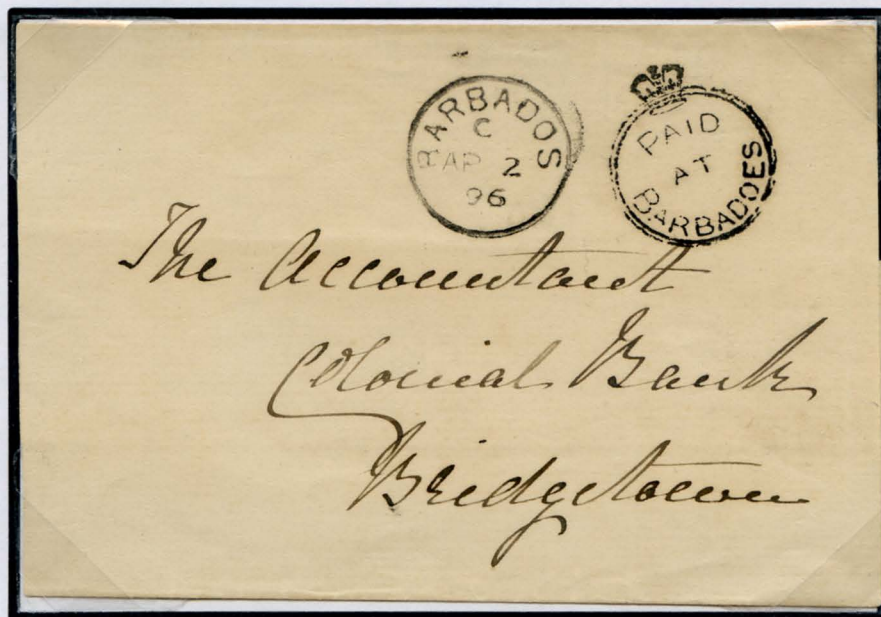 BARBADOS
C
AP 2
96
PAID
AT
BARBADOES
The Accountant
Colonial Bank
Bridgetown